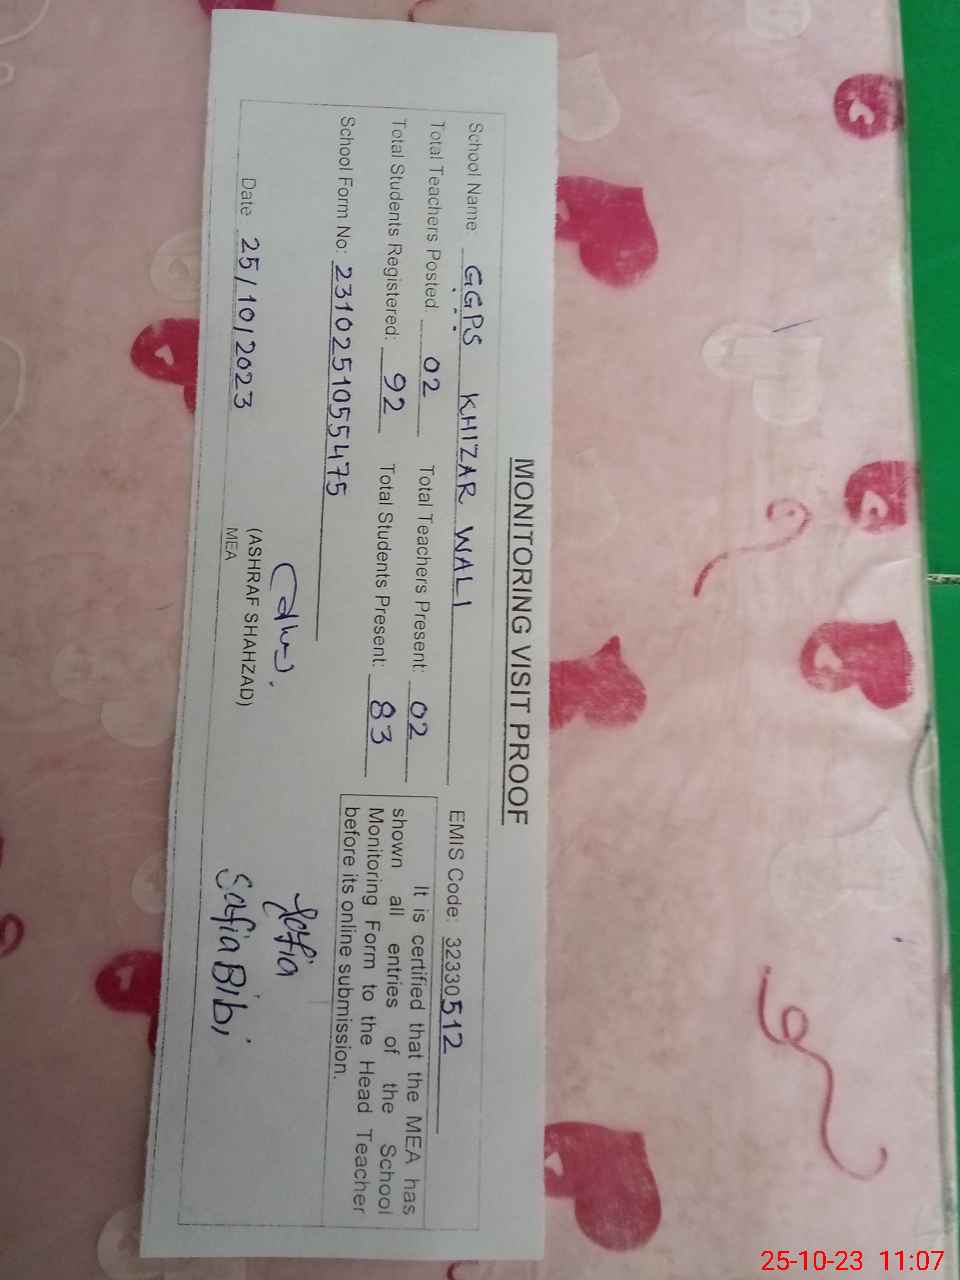 MONITORING VISIT PROOF
School Name: GGPS KHIZAR WALI EMIS Code: 32330512
Total Teachers Posted: 02 Total Teachers Present: 02
Total Students Registered: 92 Total Students Present: 83
School Form No: 2310251055475
It is certified that the MEA has
shown all entries of the School
Monitoring Form to the Head Teacher
before its online submission.
Date 25/10/2023
(ASHRAF SHAHZAD)
MEA
Safia
Safia Bibi
25-10-23 11:07